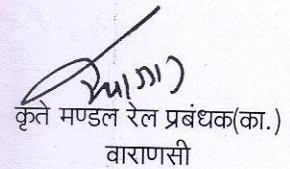 कृते मण्डल रेल प्रबंधक(का.)
वाराणसी